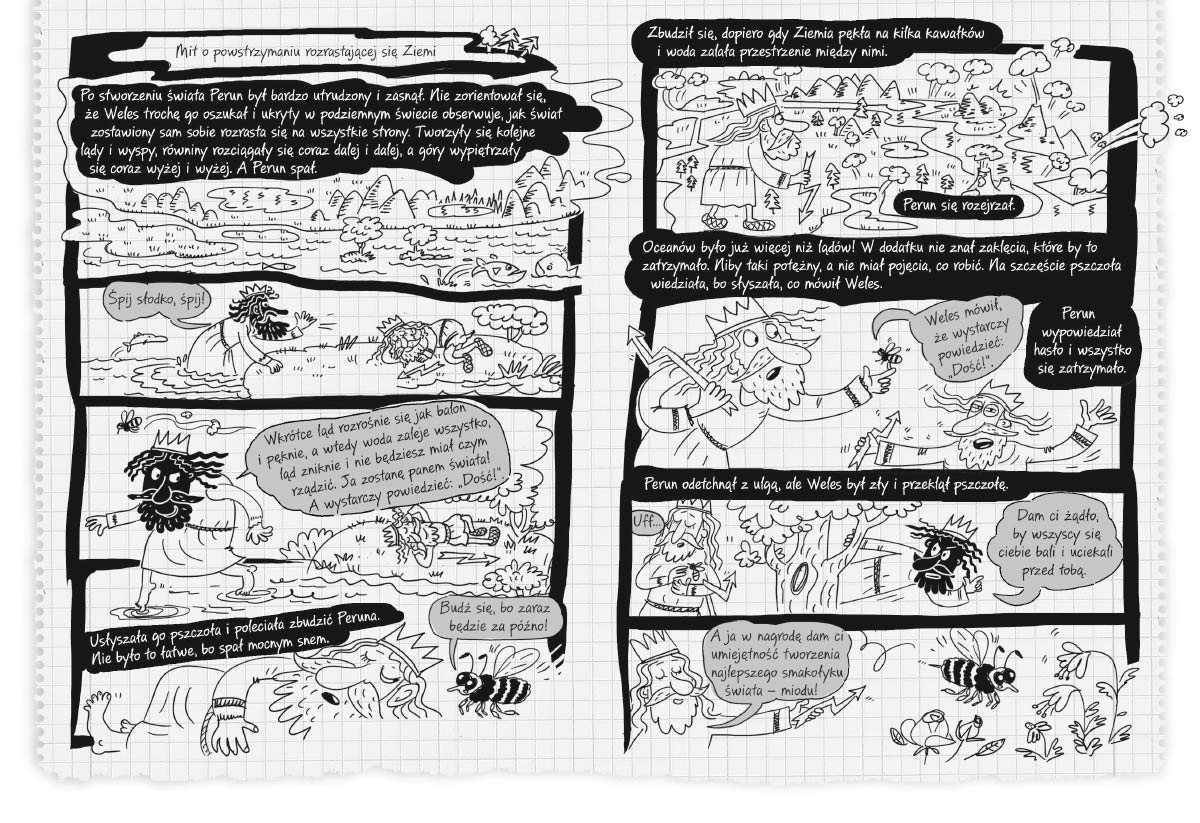 Mit o powstrzymaniu rozrastającej się Ziemi
Po stworzeniu świata Perun był bardzo utrudzony i zasnął. Nie zorientował się,
że Weles trochę go oszukał i ukryty w podziemnym świecie obserwuje, jak świat
zostawiony sam sobie rozrasta się na wszystkie strony. Tworzyły się kolejne
lądy i wyspy, równiny rozciągały się coraz dalej i dalej, a góry wypiętrzały
się coraz wyżej i wyżej. A Perun spał.
Śpij słodko, śpij!
Wkrótce ląd rozrośnie się jak balon
i pęknie, a wtedy woda zaleje wszystko,
ląd zniknie i nie będziesz miał czym
rządzić. Ja zostanę panem świata!
A wystarczy powiedzieć: „Dość!".
Usłyszała go pszczoła i poleciała zbudzić Peruna.
Nie było to łatwe, bo spał mocnym snem.
Budź się, bo zaraz
będzie za późno!
Zbudził się, dopiero gdy Ziemia pękła na kilka kawałków
i woda zalała przestrzenie między nimi.
Perun się rozejrzał.
Oceanów było już więcej niż lądów! W dodatku nie znał zaklęcia, które by to
zatrzymało. Niby taki potężny, a nie miał pojęcia, co robić. Na szczęście pszczoła
wiedziała, bo słyszała, co mówił Weles.
Weles mówił,
że wystarczy
powiedzieć:
„Dość!".
Perun
wypowiedział
hasło i wszystko
się zatrzymało.
Perun odetchnął z ulgą, ale Weles był zły i przeklął pszczołę.
Uff...
Dam ci żądło,
by wszyscy się
ciebie bali i uciekali
przed tobą.
A ja w nagrodę dam ci
umiejętność tworzenia
najlepszego smakołyku
świata – miodu!